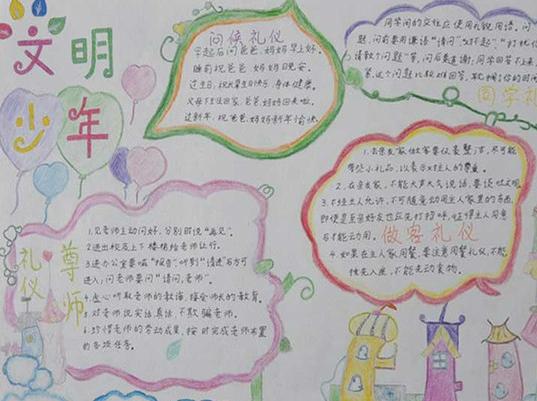 文明
少年
问候礼仪
早起后问爸爸、妈妈早上好。
睡前祝爸爸、妈妈晚安。
过生日,祝
身体健康。
父母下班回家,爸爸、妈妈回来啦。
过新年,祝爸爸、妈妈新年愉快。
同学间的交往应使用礼貌用语。问
题,问前要用谦语“请问”“对不起”、“打扰
问后要道谢,同学回答不上来
这个问题比较难回答,
同学礼
尊师
礼仪
1.见老师主动问好,分别时说“再见”。
2.进出校及上下楼梯给老师让行。
3.进办公室要喊“报告”,听到“请进”后方可
进入,问老师要问“请问,老师”。
4.虚心听取老师的教诲,接受师长的教育。
5.对老师说实话真话,不欺骗老师。
6.珍惜老师的劳动成果,按时完成老师布置
的各项任务。
1.去亲友家做客要仪表整洁,
带些小礼品,以表示对主人的尊重。
2.在亲友家,不能大声大气说话,要谈吐文明。
3.不经主人允许,不可随意动用主人家里的东西,
即使是至亲好友也应先打招呼,征得主人同意
才能动用。
做客礼仪
4.如果在主人家用餐,要注意用餐礼仪,不能
独先入座,不能先动食物。